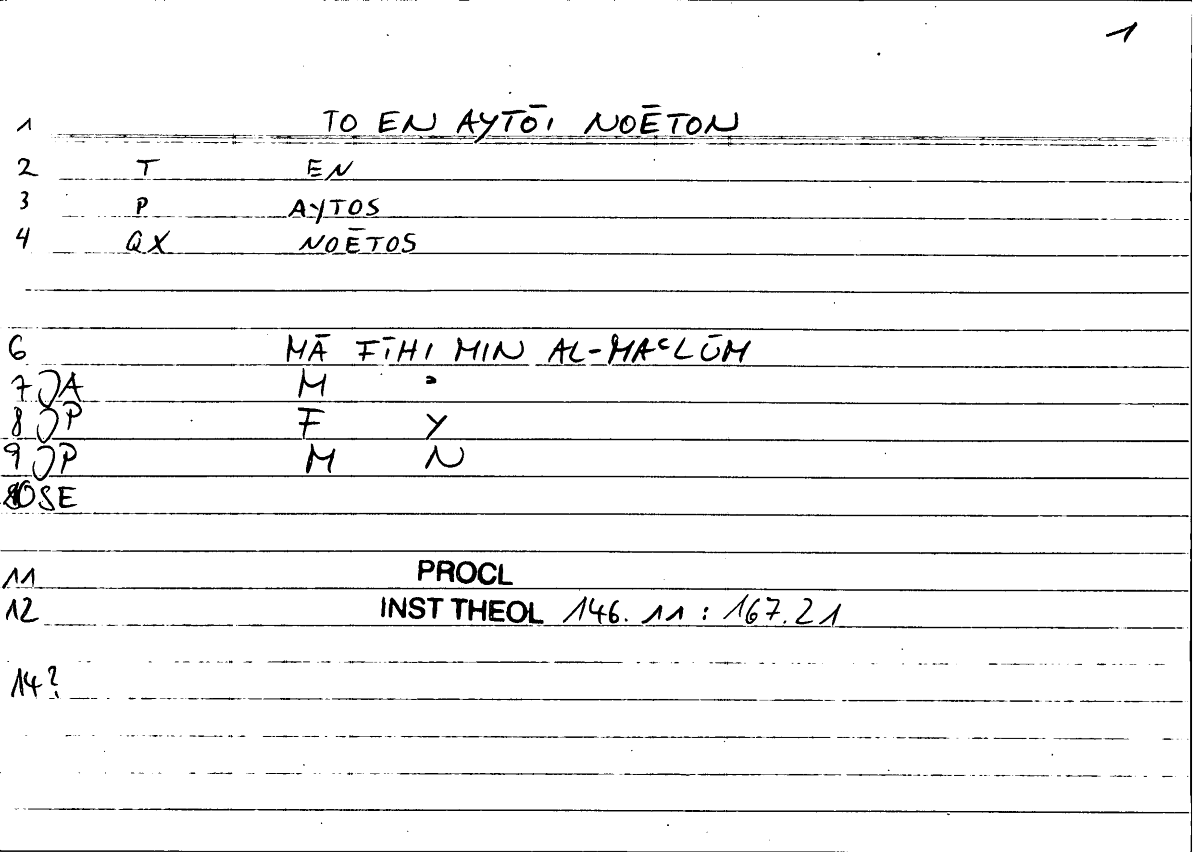 1
1 TO EN AYTŌI NOĒTON
2 T EN
3 P AYTOS
4 QX NOĒTOS
6 MĀ FĪHI MIN AL-MAʿLŪM
7 JA M ᵓ
8 JP F Y
9 JP M N
10 SE
11 PROCL
12 INST THEOL 146.11 : 167.21
14?